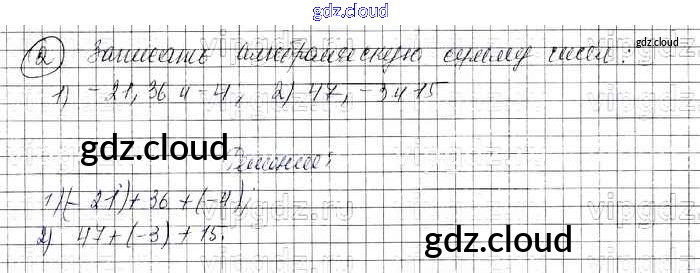 gdz.cloud
gdz.cloud
2) Записать алгебраическую сумму чисел:
1) -21, 36 и -4, 2) 47, -3 и 15
gdz.cloud
Решение:
1) (-21) + 36 + (-4);
vipgdz.ru
2) 47 + (-3) + 15.
gdz.cloud